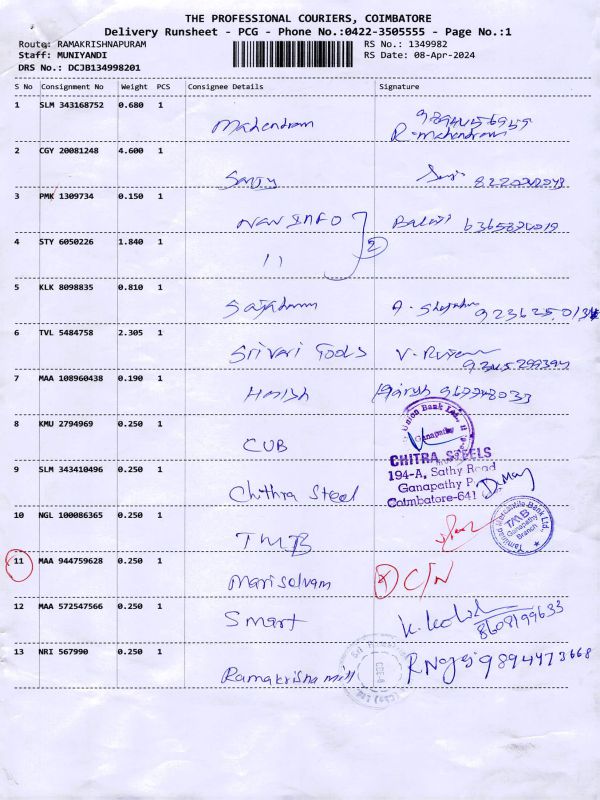 THE PROFESSIONAL COURIERS, COIMBATORE
Delivery Runsheet - PCG - Phone No.:0422-3505555 - Page No.:1
Route: RAMAKRISHNAPURAM RS No.: 1349982
Staff: MUNIYANDI RS Date: 08-Apr-2024
DRS No.: DCJB134998201
S No Consignment No Weight PCS Consignee Details Signature
1 SLM 343168752 0.680 1
Mahendram R-mahendram
2 CGY 20081248 4.600 1
Sanjy
3 PMK 1309734 0.150 1
New INFO Balaji
4 STY 6050226 1.840 1
11 2
5 KLK 8098835 0.810 1
6 TVL 5484758 2.305 1
Srivari Tools
7 MAA 108960438 0.190 1
Harish Harish
8 KMU 2794969 0.250 1
CUB
Union Bank Ltd.
Ganapathy
CHITRA STEELS
194-A, Sathy Road
Ganapathy
Coimbatore-641
9 SLM 343410496 0.250 1
Chithra Steel
10 NGL 100086365 0.250 1
TMB
Tamilnad Mercantile Bank Ltd.
TMB
Ganapathy
Branch
11 MAA 944759628 0.250 1
Mariselvam C/N
12 MAA 572547566 0.250 1
Smart 8608199633
13 NRI 567990 0.250 1
Ramakrishna mill 9894473668
CBE-6